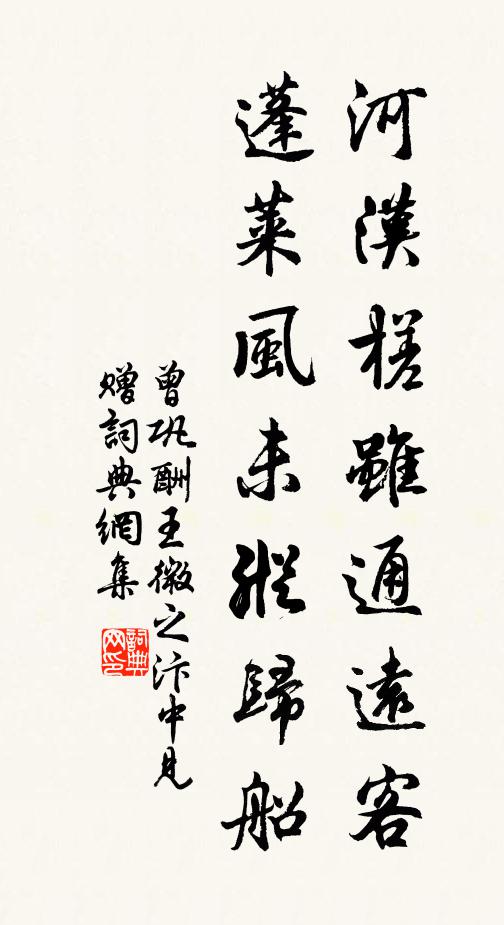 河漢槎雖通遠客
蓬萊風未縱歸船
曾巩酬王微之汴中見
贈詞典網集
詞典网印